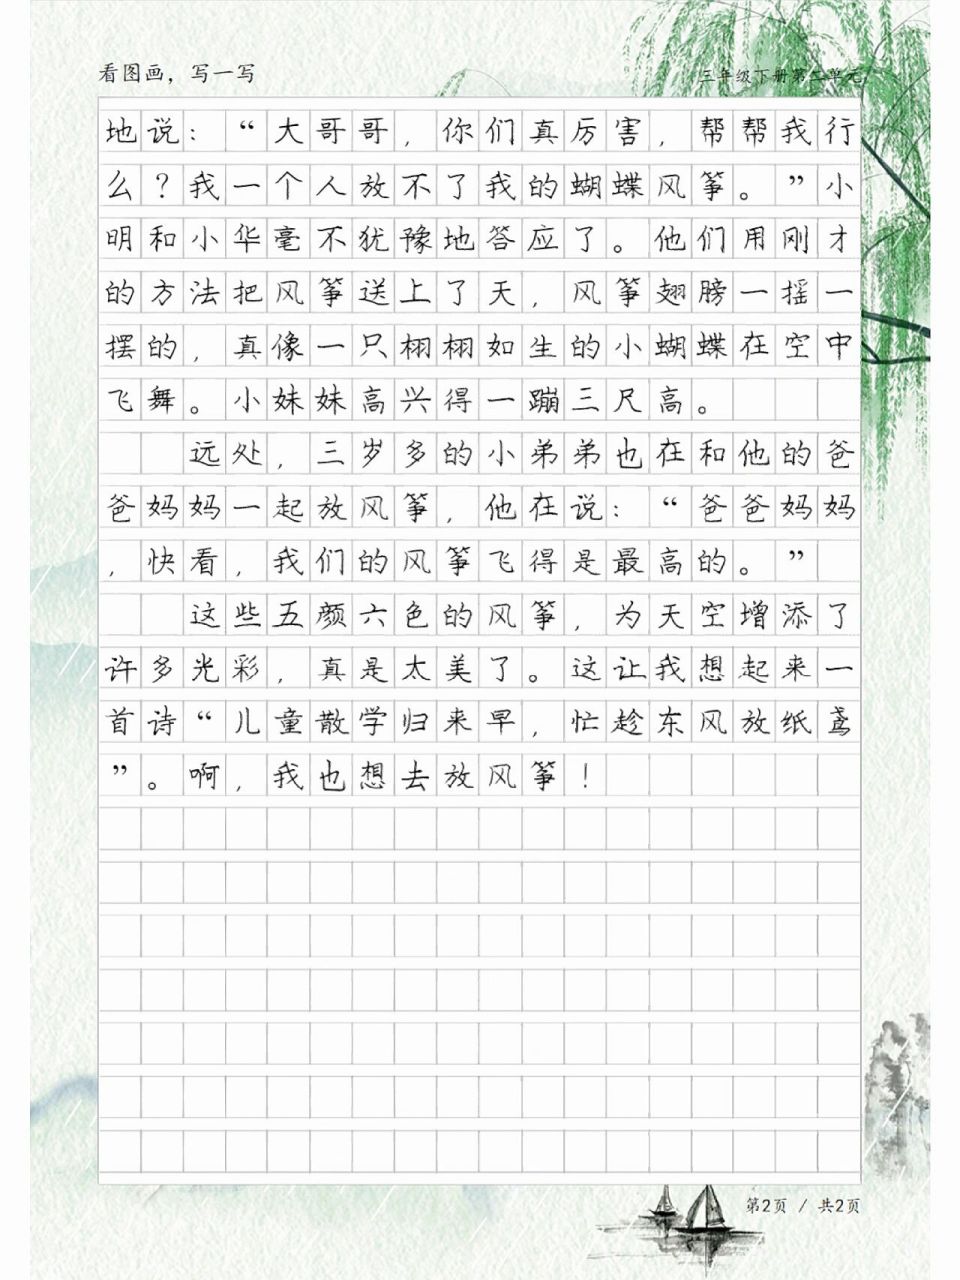 看图画，写一写
三年级下册第二单元
地说：“大哥哥，你们真厉害，帮帮我行
么？我一个人放不了我的蝴蝶风筝。”小
明和小华毫不犹豫地答应了。他们用刚才
的方法把风筝送上了天，风筝翅膀一摇一
摆的，真像一只栩栩如生的小蝴蝶在空中
飞舞。小妹妹高兴得一蹦三尺高。
远处，三岁多的小弟弟也在和他的爸
爸妈妈一起放风筝，他在说：“爸爸妈妈
，快看，我们的风筝飞得是最高的。”
这些五颜六色的风筝，为天空增添了
许多光彩，真是太美了。这让我想起来一
首诗“儿童散学归来早，忙趁东风放纸鸢
”。啊，我也想去放风筝！
第2页 / 共2页